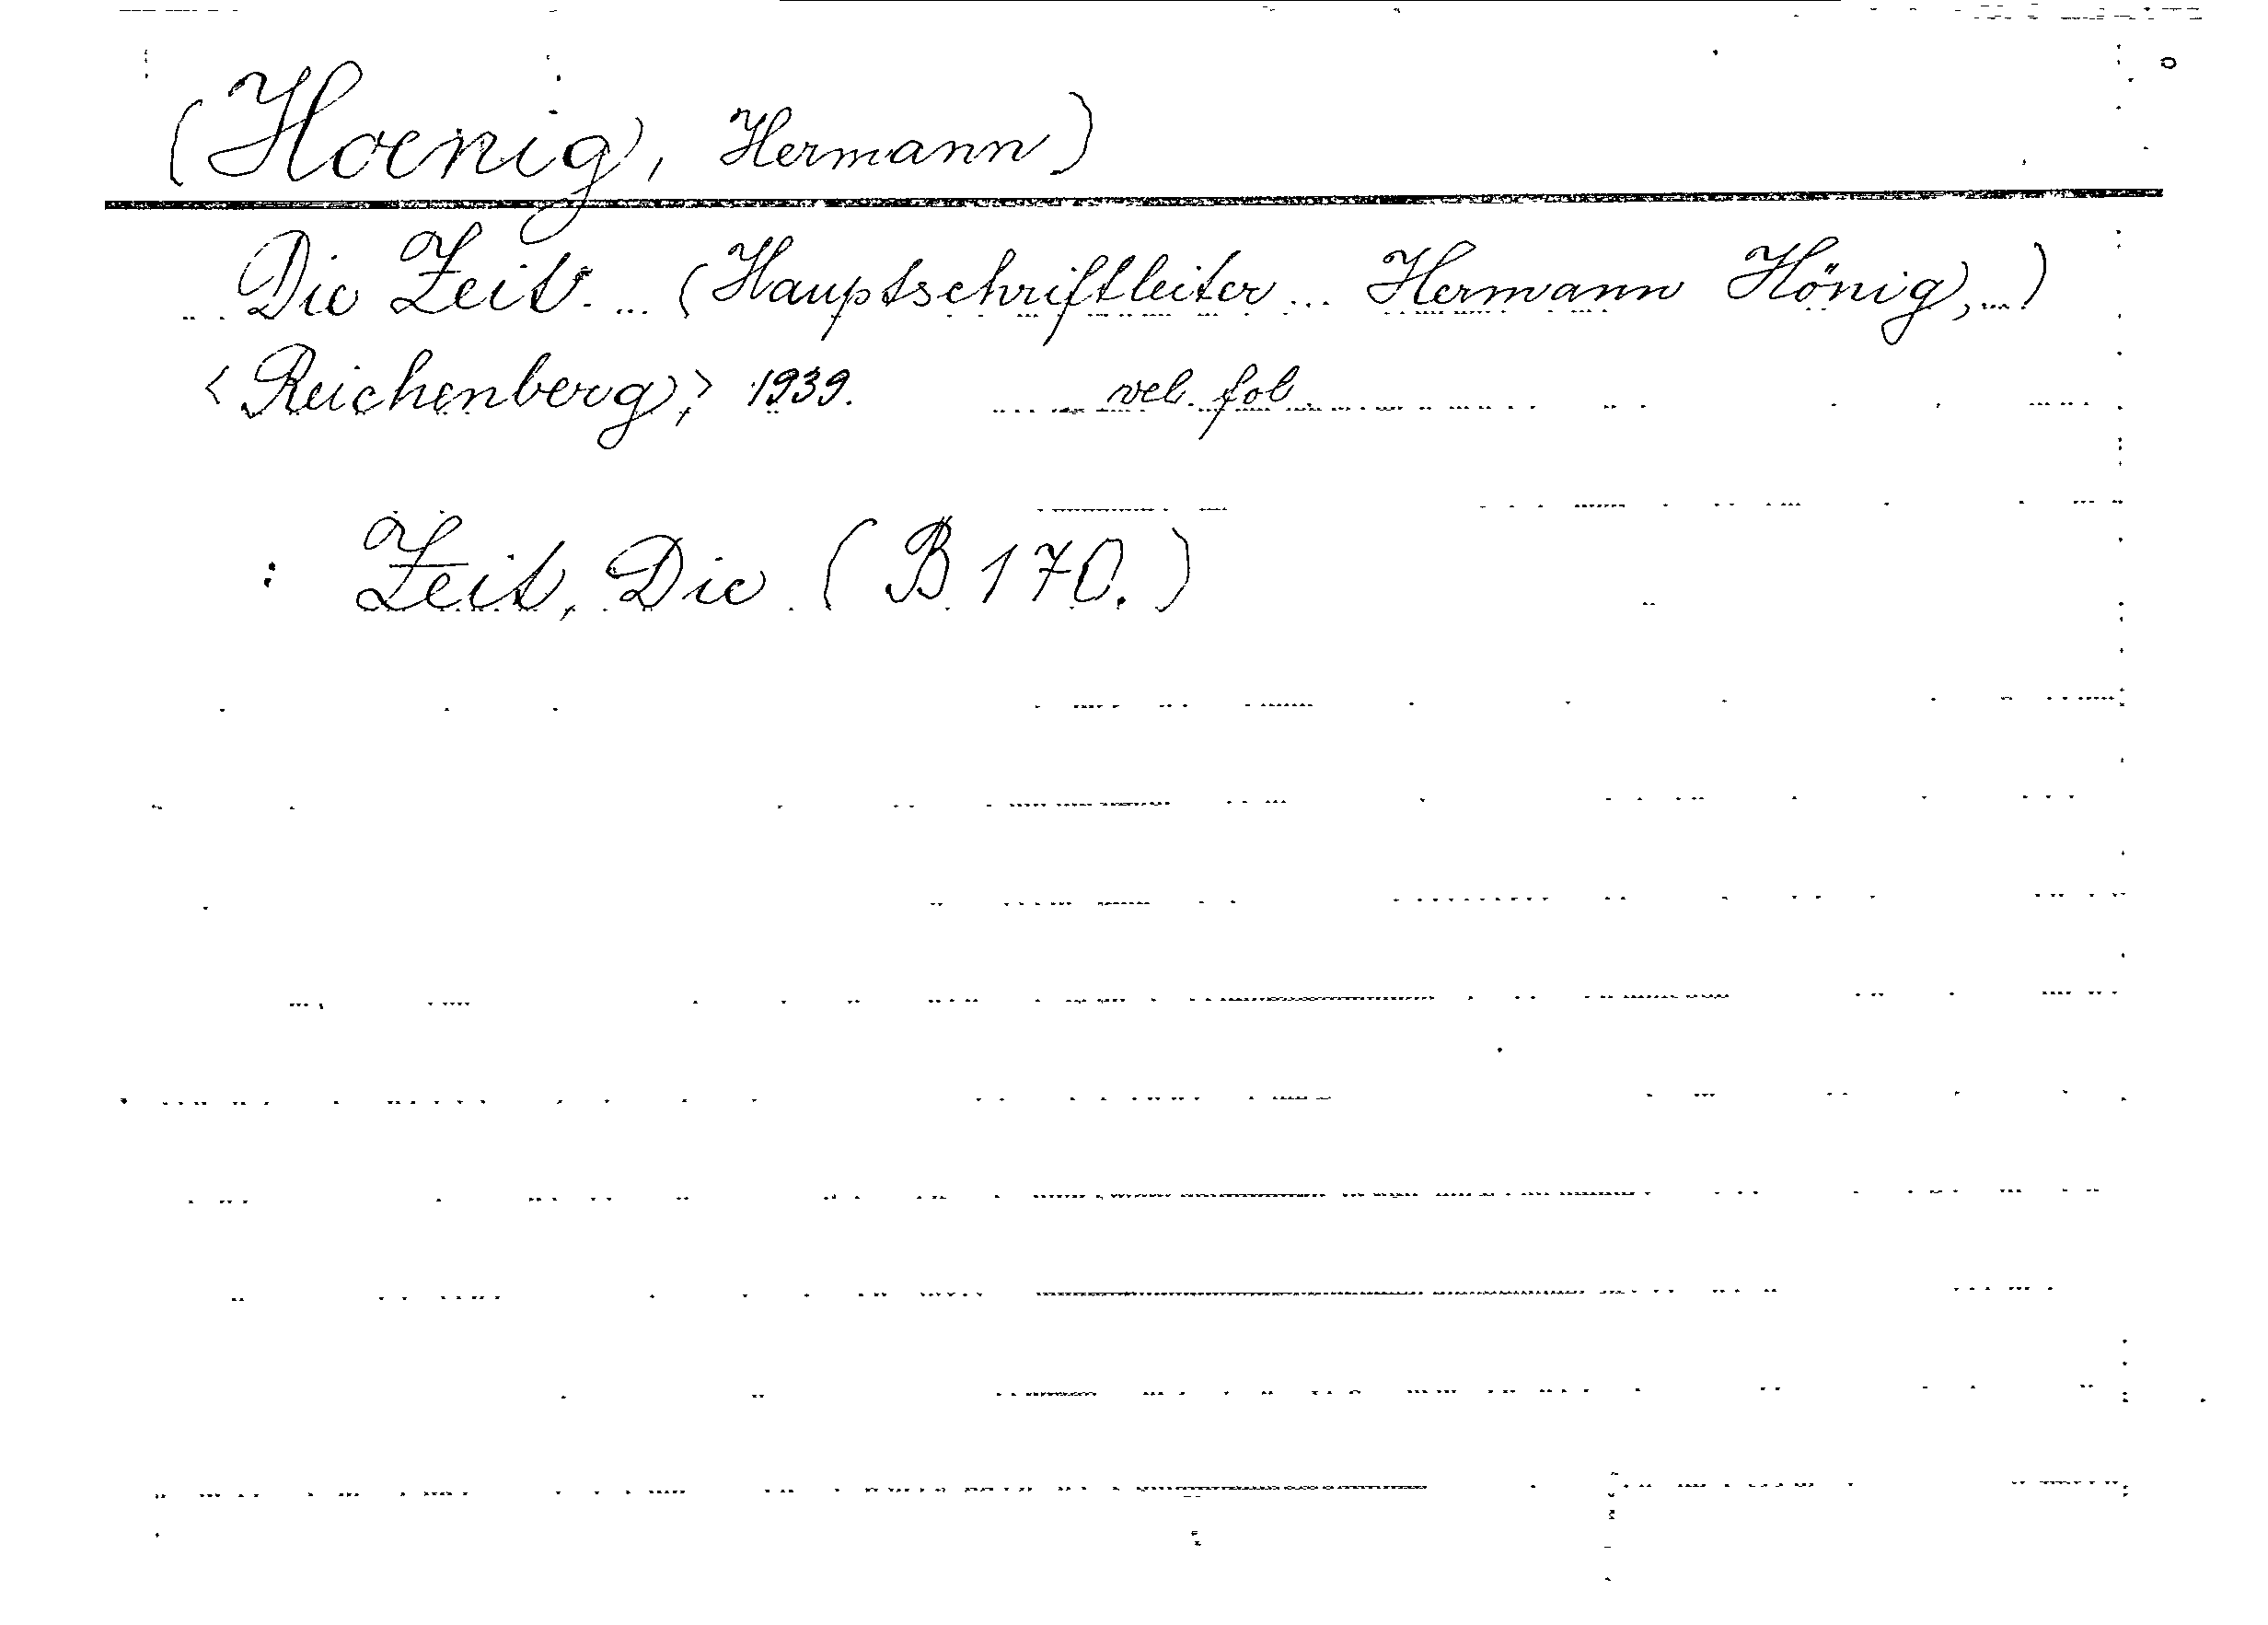 (Hoenig, Hermann)
Die Zeit. ... (Hauptschriftleiter ... Hermann Hönig, ...)
<Reichenberg,> 1939. vel. fol
: Zeit, Die (B 170.)